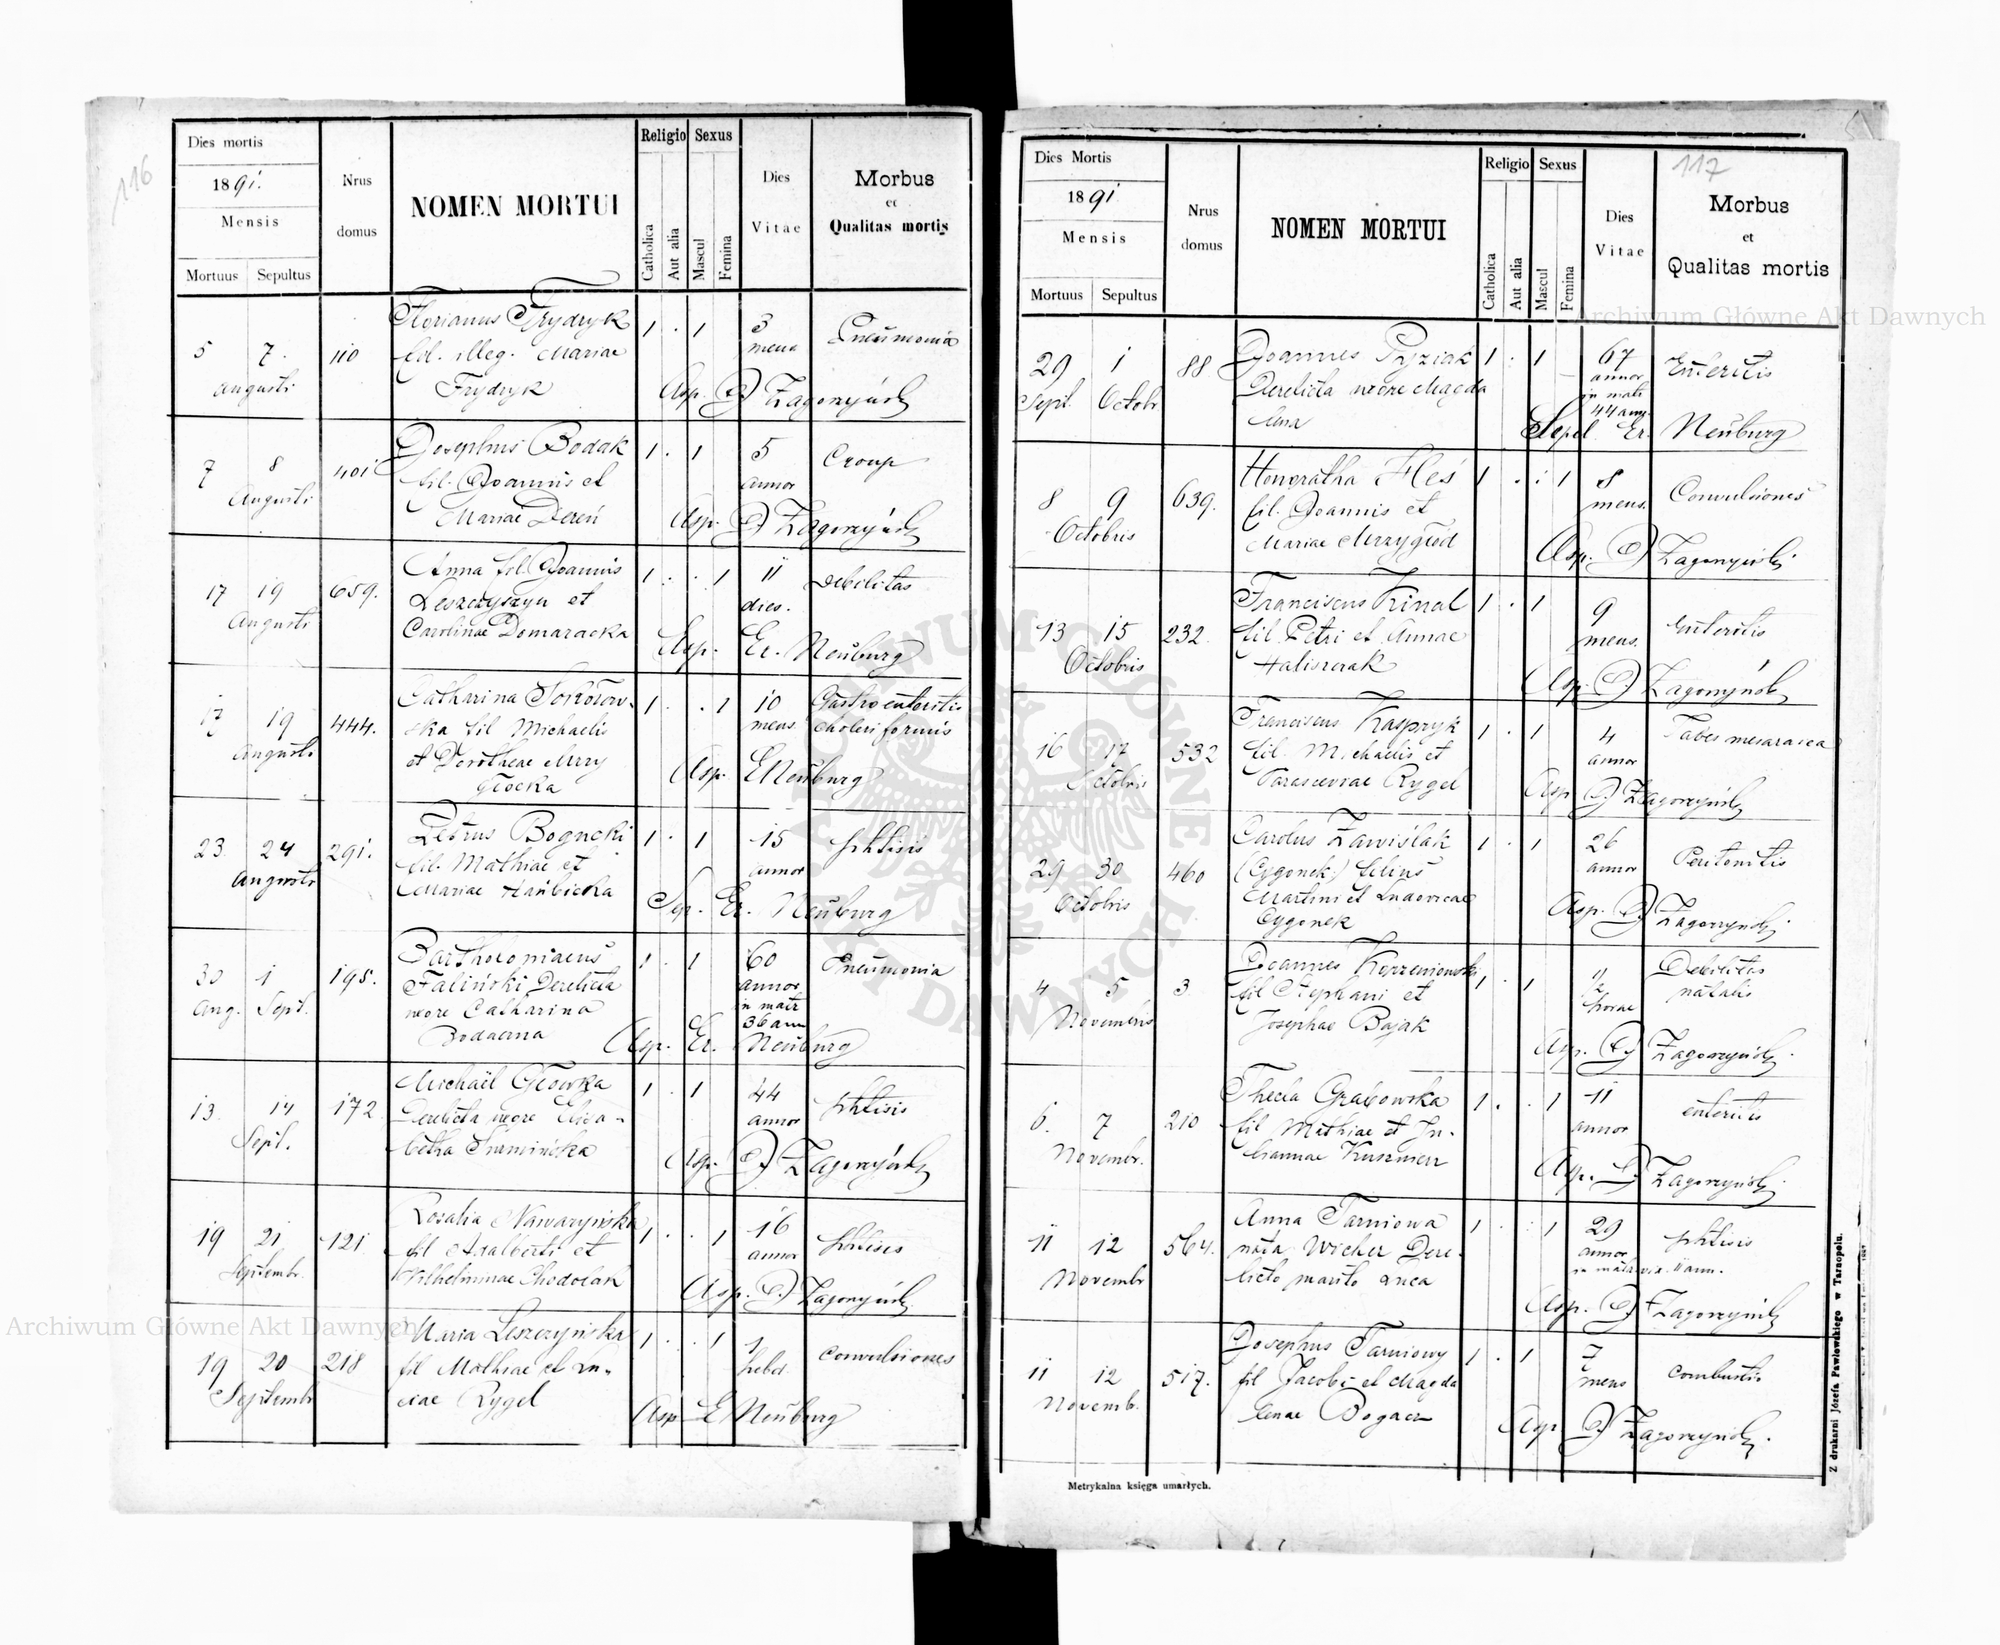 116
Dies mortis
1891.
Mensis
Mortuus Sepultus
Nrus
domus
NOMEN MORTUI
Religio Sexus
Catholica
Aut alia
Mascul
Femina
Dies
Vitae
Morbus
et
Qualitas mortis
5 7. 110 Florianus Frydryk 1 . 1 3 Pneumonia
Augusti fil. illeg. Mariae mens
Frydryk Asp. Zagorzyński
7 8 401 Josephus Bodak 1 . 1 5 Croup
Augusti fil. Joannis et annor
Mariae Dereń Asp. Zagorzyński
17 19 659. Anna fil. Joannis 1 . . 1 11 Debilitas
Augusti Leszczyszyn et dies.
Carolinae Domaracka Asp. Er. Neuburg
17 19 444. Catharina Sokołow- 1 . . 1 10 Gastroenteritis
Augusti ska fil Michaelis mens choleriformis
et Dorotheae Mrzy
głocka Asp. E Neuburg
23. 24 291. Petrus Bogncki 1 . 1 15 phtisis
Augusti fil. Mathiae et annor
Mariae Sep. Er. Neuburg
30 1 195. Bartholomaeus 1 . 1 60 Pneumonia
Aug. Sept. Faliński Derelicta annor
uxore Catharina in matr
36 ann
Bodaerna Asp. Er. Neuburg
13. 14 172 Michaël Głowka 1 . 1 44 phtisis
Sept. Derelicta uxore Elisa- annor
betha Asp. Zagorzyński
19 21 121 Rosalia Nawaryńska 1 . . 1 16 phtisis
Septembr. fil Adalberti et annor
Wilhelminae Chodolak Asp. Zagorzyński
19 20 218 Maria Leszczyńska 1 . . 1 1 Convulsiones
Septembr fil Mathiae et Lu- hebd.
ciae Rygel Asp E Neuburg
117
Dies Mortis
1891
Mensis
Mortuus Sepultus
Nrus
domus
NOMEN MORTUI
Religio Sexus
Catholica
Aut alia
Mascul
Femina
Dies
Vitae
Morbus
et
Qualitas mortis
29 1 88 Joannes Pyziak 1 . 1 67 Enteritis
Sept. Octobr Derelicta uxore Magda annor
in matr
44 ann.
lena Sepel Er. Neuburg
8 9 639. Honoratha Fleś 1 . . 1 8 Convulsiones
Octobris fil. Joannis et mens.
Mariae Mrzygłód Asp. Zagorzyński
13 15 232. Franciscus Kinal 1 . 1 9 Enteritis
Octobris fil. Petri et Annae mens.
Haliszczak Asp. Zagorzyński
16 17 532 Franciscus Kasprzyk 1 . 1 4 Tabes mesaraica
Octobris fil. Michaelis et annor
Parascevae Rygel Asp Zagorzyński
29 30 460 Carolus Zawiślak 1 . 1 26 Peritonitis
Octobris (Cygonek) filius annor
Martini et Ludovicae
Cygonek Asp. Zagorzyński
4 5 3 Joannes Korzeniowski 1 . 1 1/2 Debilitas
Novembris fil Stephani et horae natalis
Josephae Bajak Asp. Zagorzyński
6. 7 210 Thecla Grabowska 1 . . 1 11 enteritis
Novembr. fil Mathiae et Ju- annor
liannae Kuszmerz Asp. Zagorzyński
11 12 564. Anna Tarniowa 1 . . 1 29 phtisis
Novembr nata Wicher Dere- annor
licto marito Luca in matr vix. 11 ann.
Asp. Zagorzyński
11 12 517. Josephus Tarniowy 1 . 1 7 Combustio
Novemb. fil Jacobi et Magda mens
lenae Bogacz Asp Zagorzyński.
Metrykalna księga umarłych.
Z drukarni Józefa Pawłowskiego w Tarnopolu.
Archiwum Główne Akt Dawnych
Archiwum Główne Akt Dawnych
ARCHIWUM GŁÓWNE AKT DAWNYCH